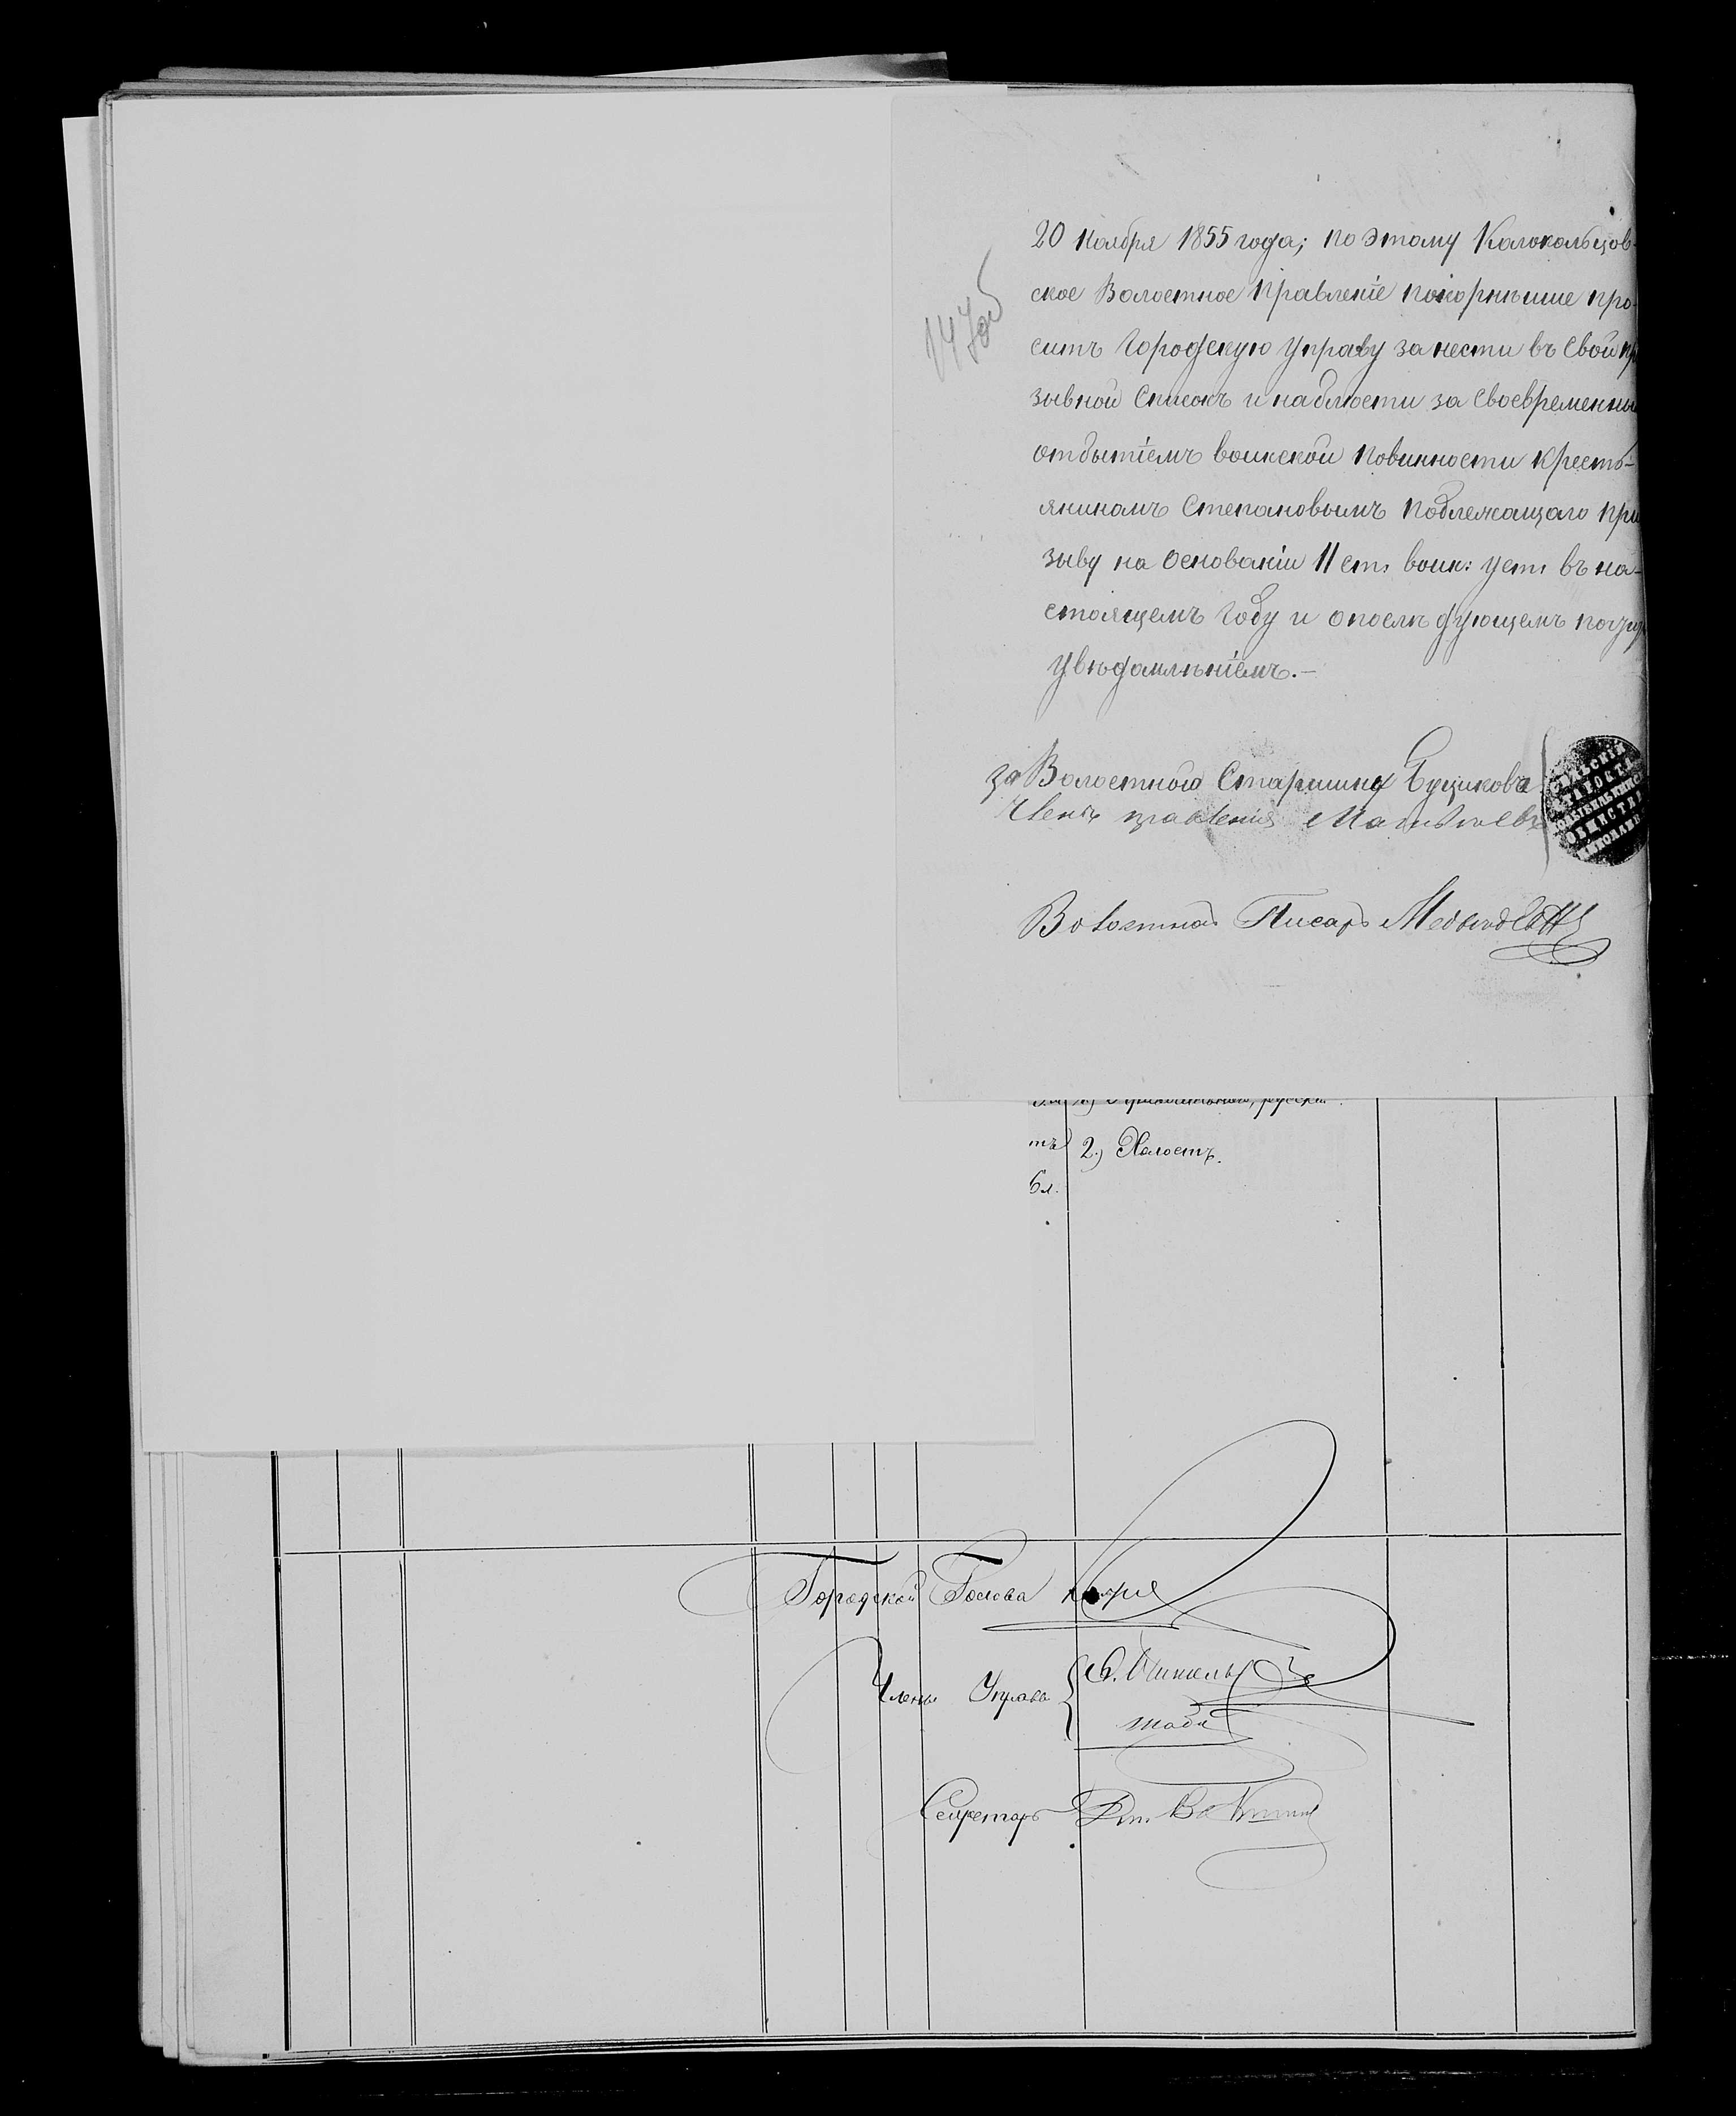 20 Ноября 1855 года; по этому Колокольцов-
ское Волостное Правленіе покорнѣише про-
ситъ Городскую Управу занести въ Свой пр
зывной Списокъ и наблюсти за Своевременны
отбытіемъ воинской повинности кресть-
яниномъ Степановымъ подлежащаго при
зыву на основаніи 11 ст. воин: уст. въ на-
стоящемъ году и о послѣдующемъ почт
увѣдомлѣніемъ.—
147 об
за Волостнаго Старшину
Членъ правленія Матвѣевъ
Волостной Писарь
2.) Холостъ.
бл.
Городской Голова
Члены Управы
Секретарь